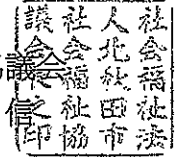 社会福祉法
人北秋田市
社会福祉協
議会長之印
議会
信